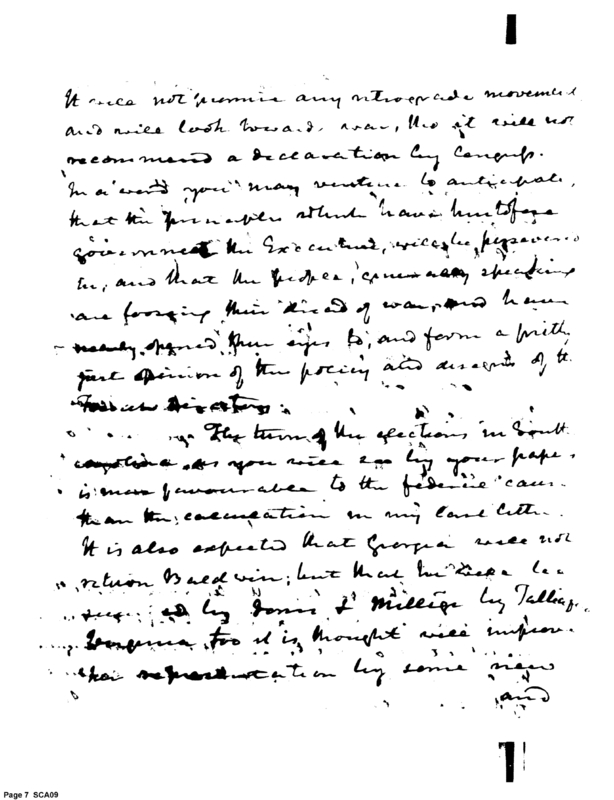 It will not promise any retrograde movement
and will look towards war, tho it will not
recommend a declaration by Congress.
In a word you may venture to anticipate,
that the principles which have heretofore
governed the Executive, will be persevered
in, and that the people, generally speaking
are foregoing their dread of war, and have
nearly opened their eyes to, and form a pretty
just opinion of the policy and designs of the
French Directory.
The turn of the elections in South
Carolina as you will see by your papers
is more favourable to the federal cause
than the calculation in my last letter.
It is also expected that Georgia will not
return Baldwin; but that he will be
by Jones & by
Virginia too it is thought will improve
her representation by some new
and
Page 7 SCA09